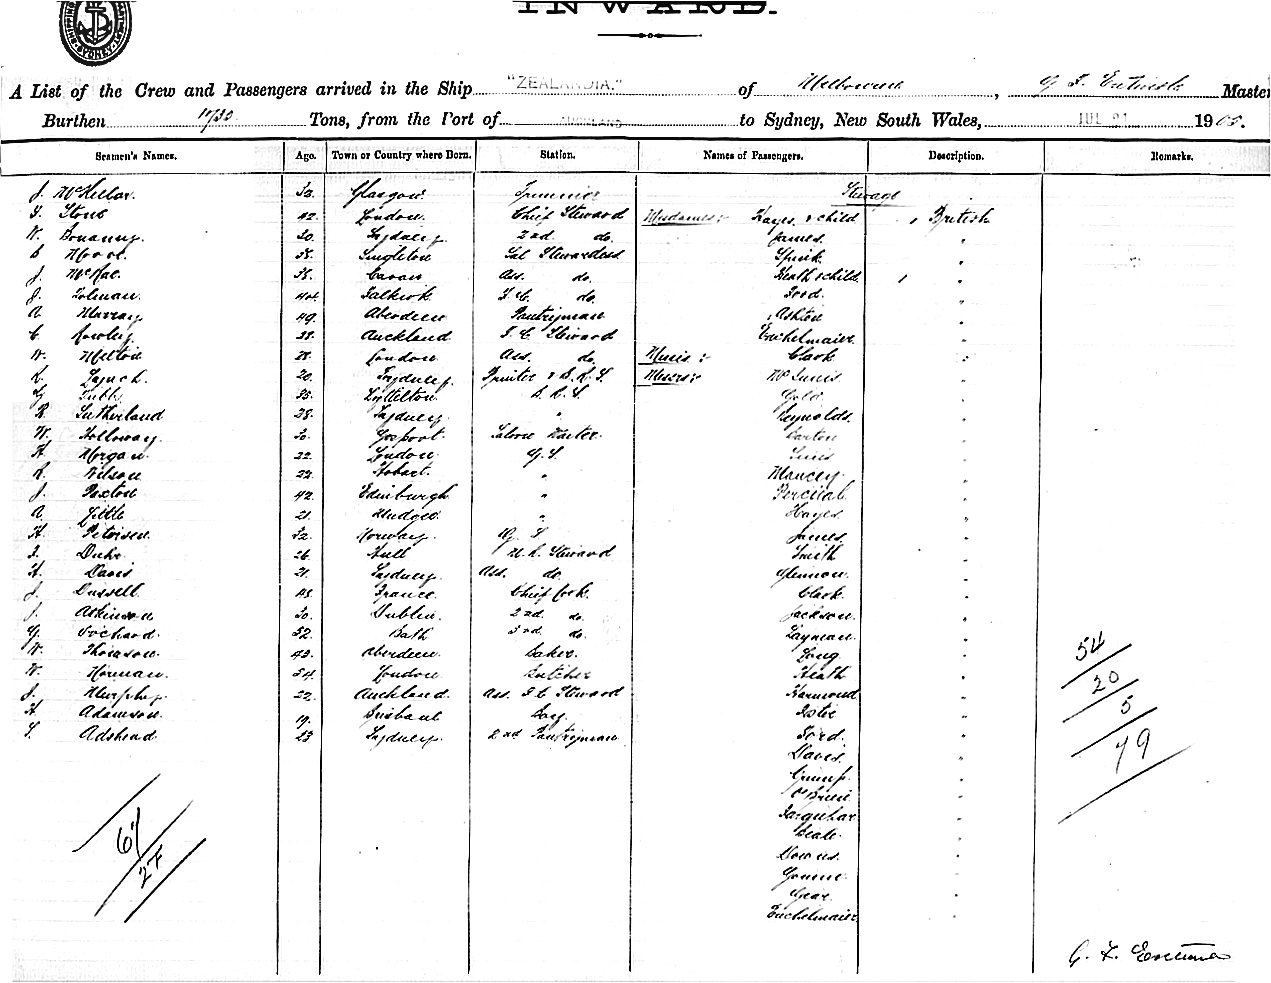 INWARD.
SYDNEY
A List of the Crew and Passengers arrived in the Ship "ZEALANDIA." of Melbourne, Master
Burthen Tons, from the Port of AUCKLAND to Sydney, New South Wales, JUL 21 190
Seamen's Names. Age. Town or Country where Born. Station. Names of Passengers. Description. Remarks.
J. McKellar Glasgow Trimmer Steerage
Stone 42 London Chief Steward Mesdames: Hayes & child 1 British
W. Bonanny 30 Sydney 2nd do. James "
Moot 38 Singleton Sal Stewardess Spink "
J. McRae 38 Cavan Ass. do. Heath & child 1 "
J. Tolman 44 Falkirk F.C. do. Ford. "
A. Murray 49 Aberdeen Pantryman Ashton "
C. Rowley 38 Auckland F.C. Steward Tuchelmaier "
W. Melton 28 London Ass. do. Misses: Clark "
Lynch. 20 Sydney Printer & B.R.S. Messrs: McInnis "
G. Tubb 35 Lyttelton B.R.S. Gold. "
R. Sutherland 28 Sydney " Reynolds. "
W. Holloway 30 Gosport Saloon Waiter. Barton "
H. Morgan 22 London G.S. "
R. Wilson 22 Hobart. " Mancey "
J. Paxton 42 Edinburgh " Percival "
A. Little 21 Mudgee " Hayes "
H. Petersen 32 Norway G.S James "
Duke 26 Hull M.R. Steward Smith "
H. Davis 21 Sydney Ass. do. Glennon "
J. Dussell 45 France Chief Cook Clark "
J. Atkinson 30 Dublin 2nd do. Jackson "
G. 52 Bath 3rd do. Layman "
W. Thomson 43 Aberdeen Baker. Long "
W. Norman 54 London Butcher Heath "
J. Murphy 22 Auckland Ass. F.C Steward Hammond "
H. Adamson 19 Brisbane Boy. "
Adshead 23 Sydney 2nd Pantryman Ford. "
Davis "
Crump "
O'Brien "
Farquhar "
Beale "
Downs. "
"
Gear "
Tuchelmaier "
54
20
5
79
67
27